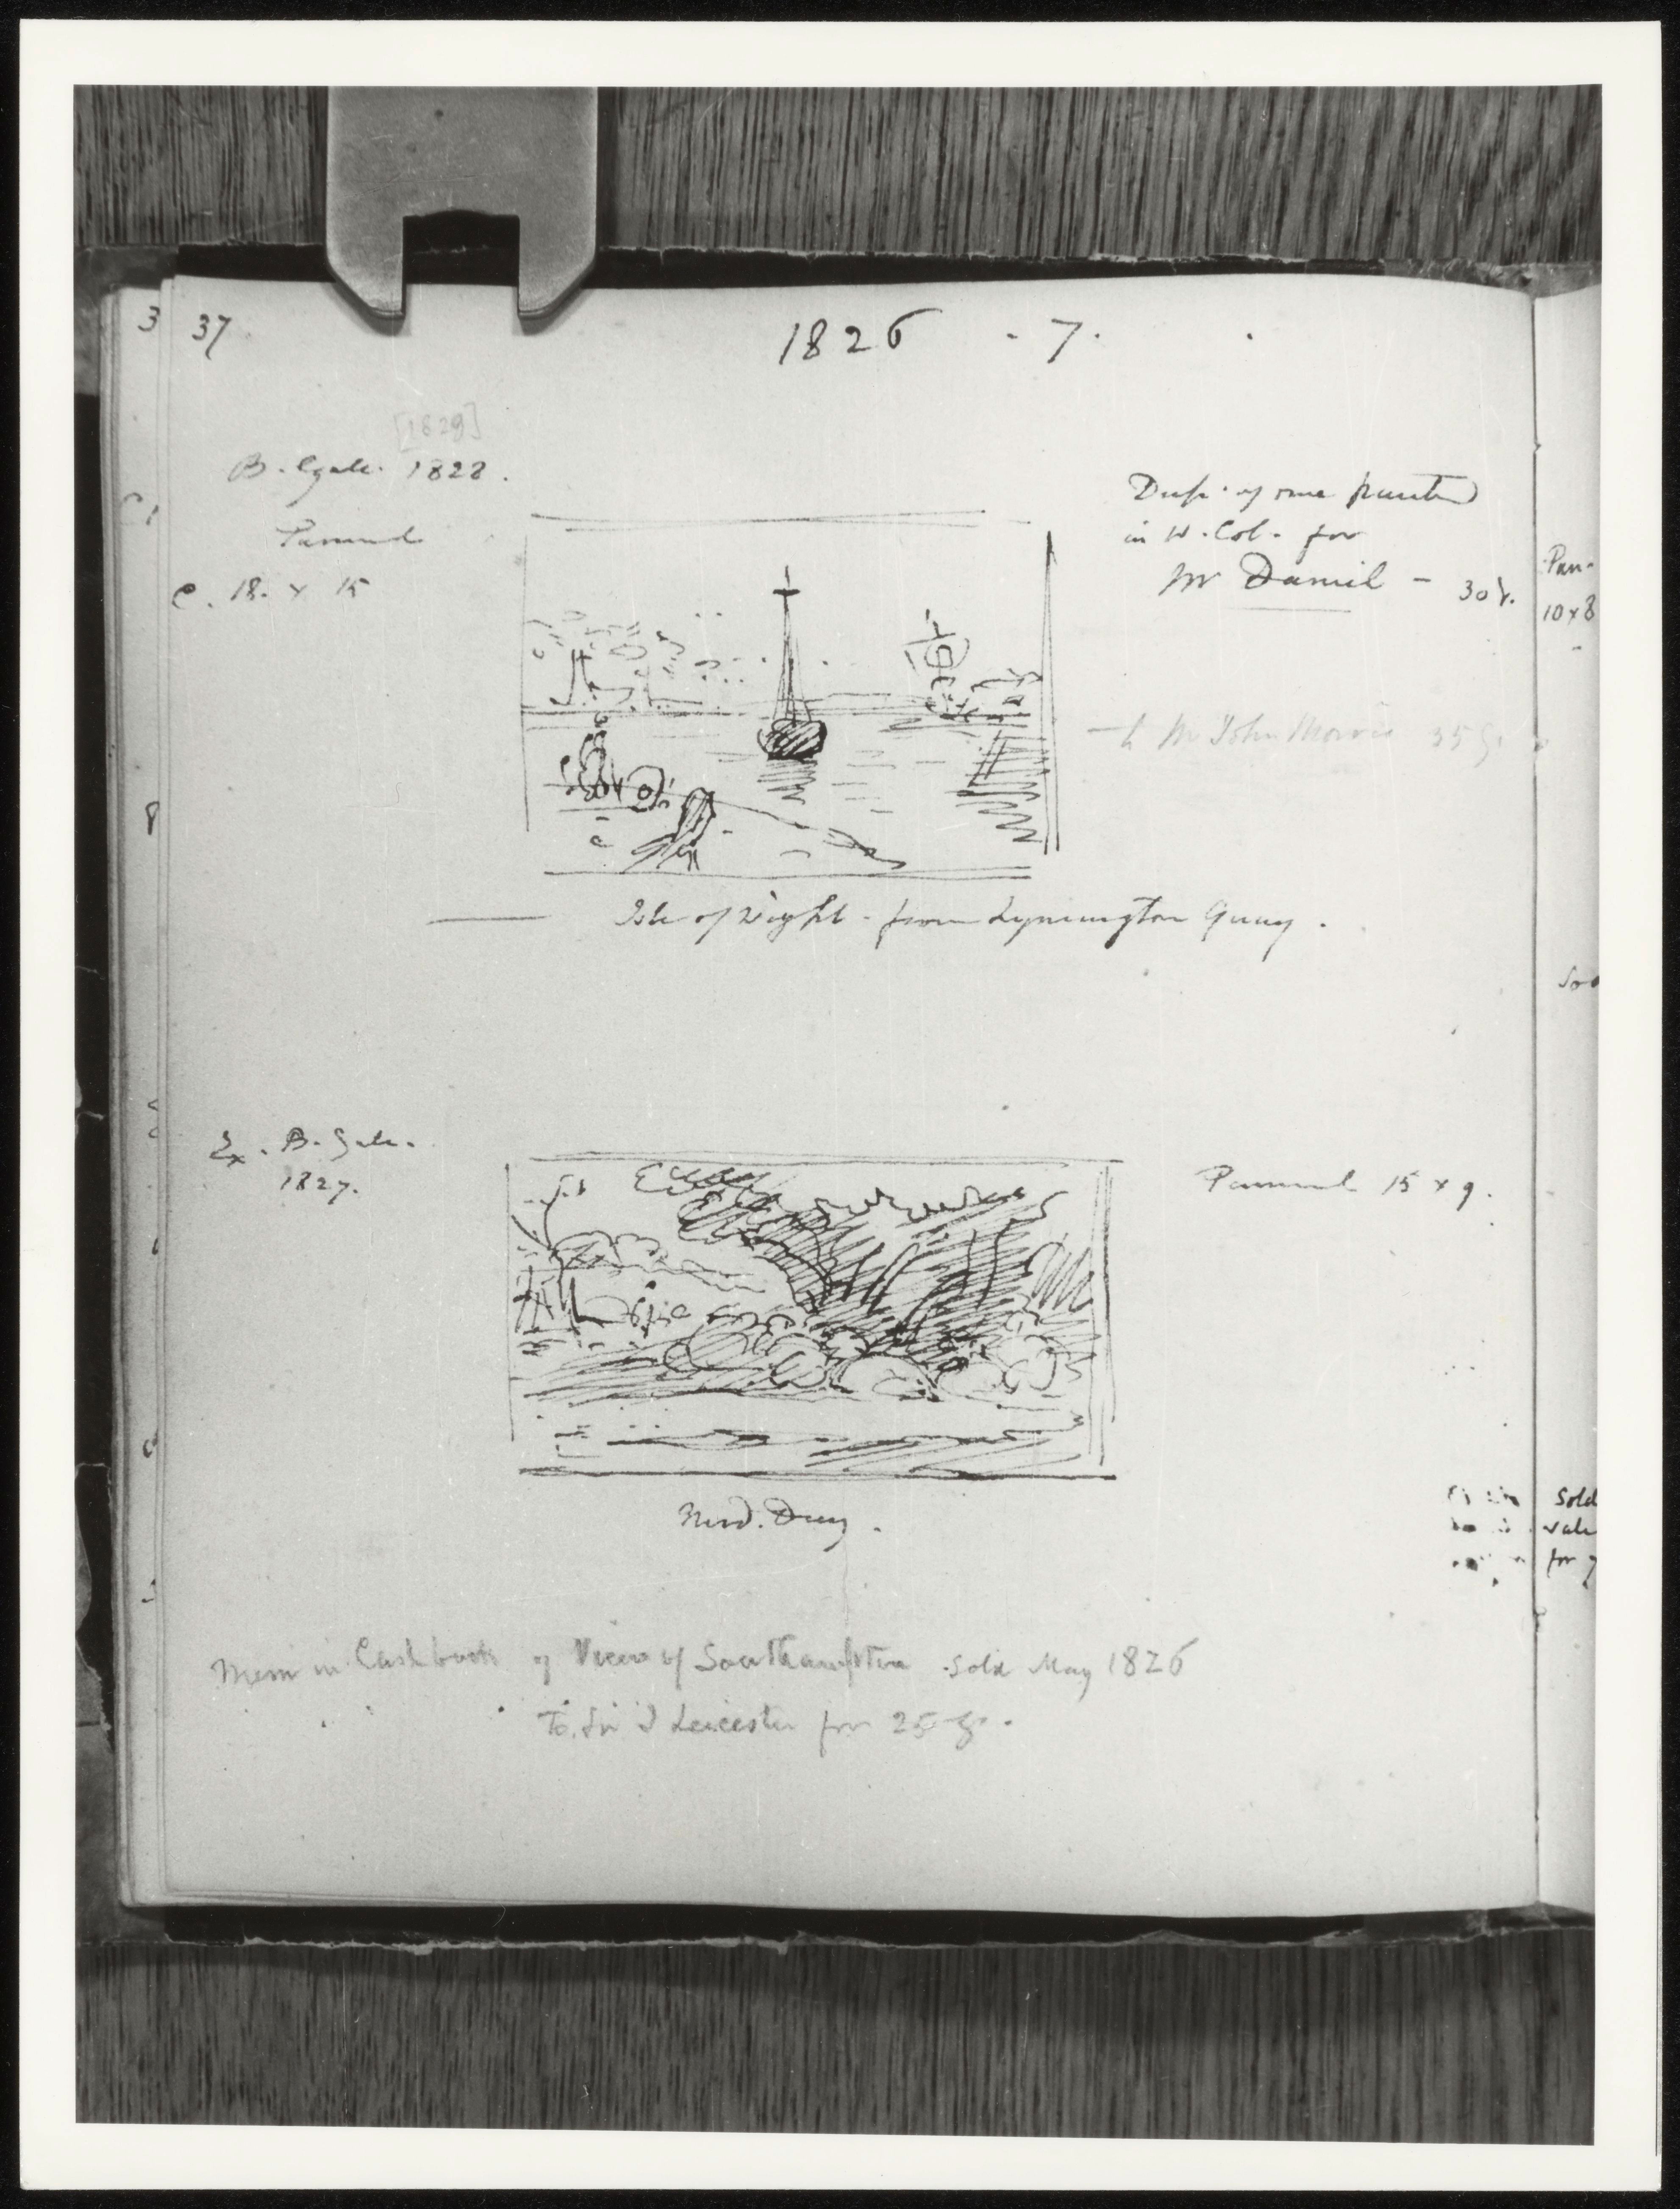 3 37
1826 - 7.
[1829]
B. Gall. 1828.
Pannel
C. 18. x 15
Dup. of one painted
in W. Col. for
Mr Daniel - 30
to Mr John Morris 35 gs
Isle of Wight - from Lymington Quay.
Pan-
10x8
Ex. B. Gall.
1827.
Pannel 15 x 9.
Sold
for
Mem in Cash book of View of Southampton sold May 1826
To Sir J Leicester for 25 gs.